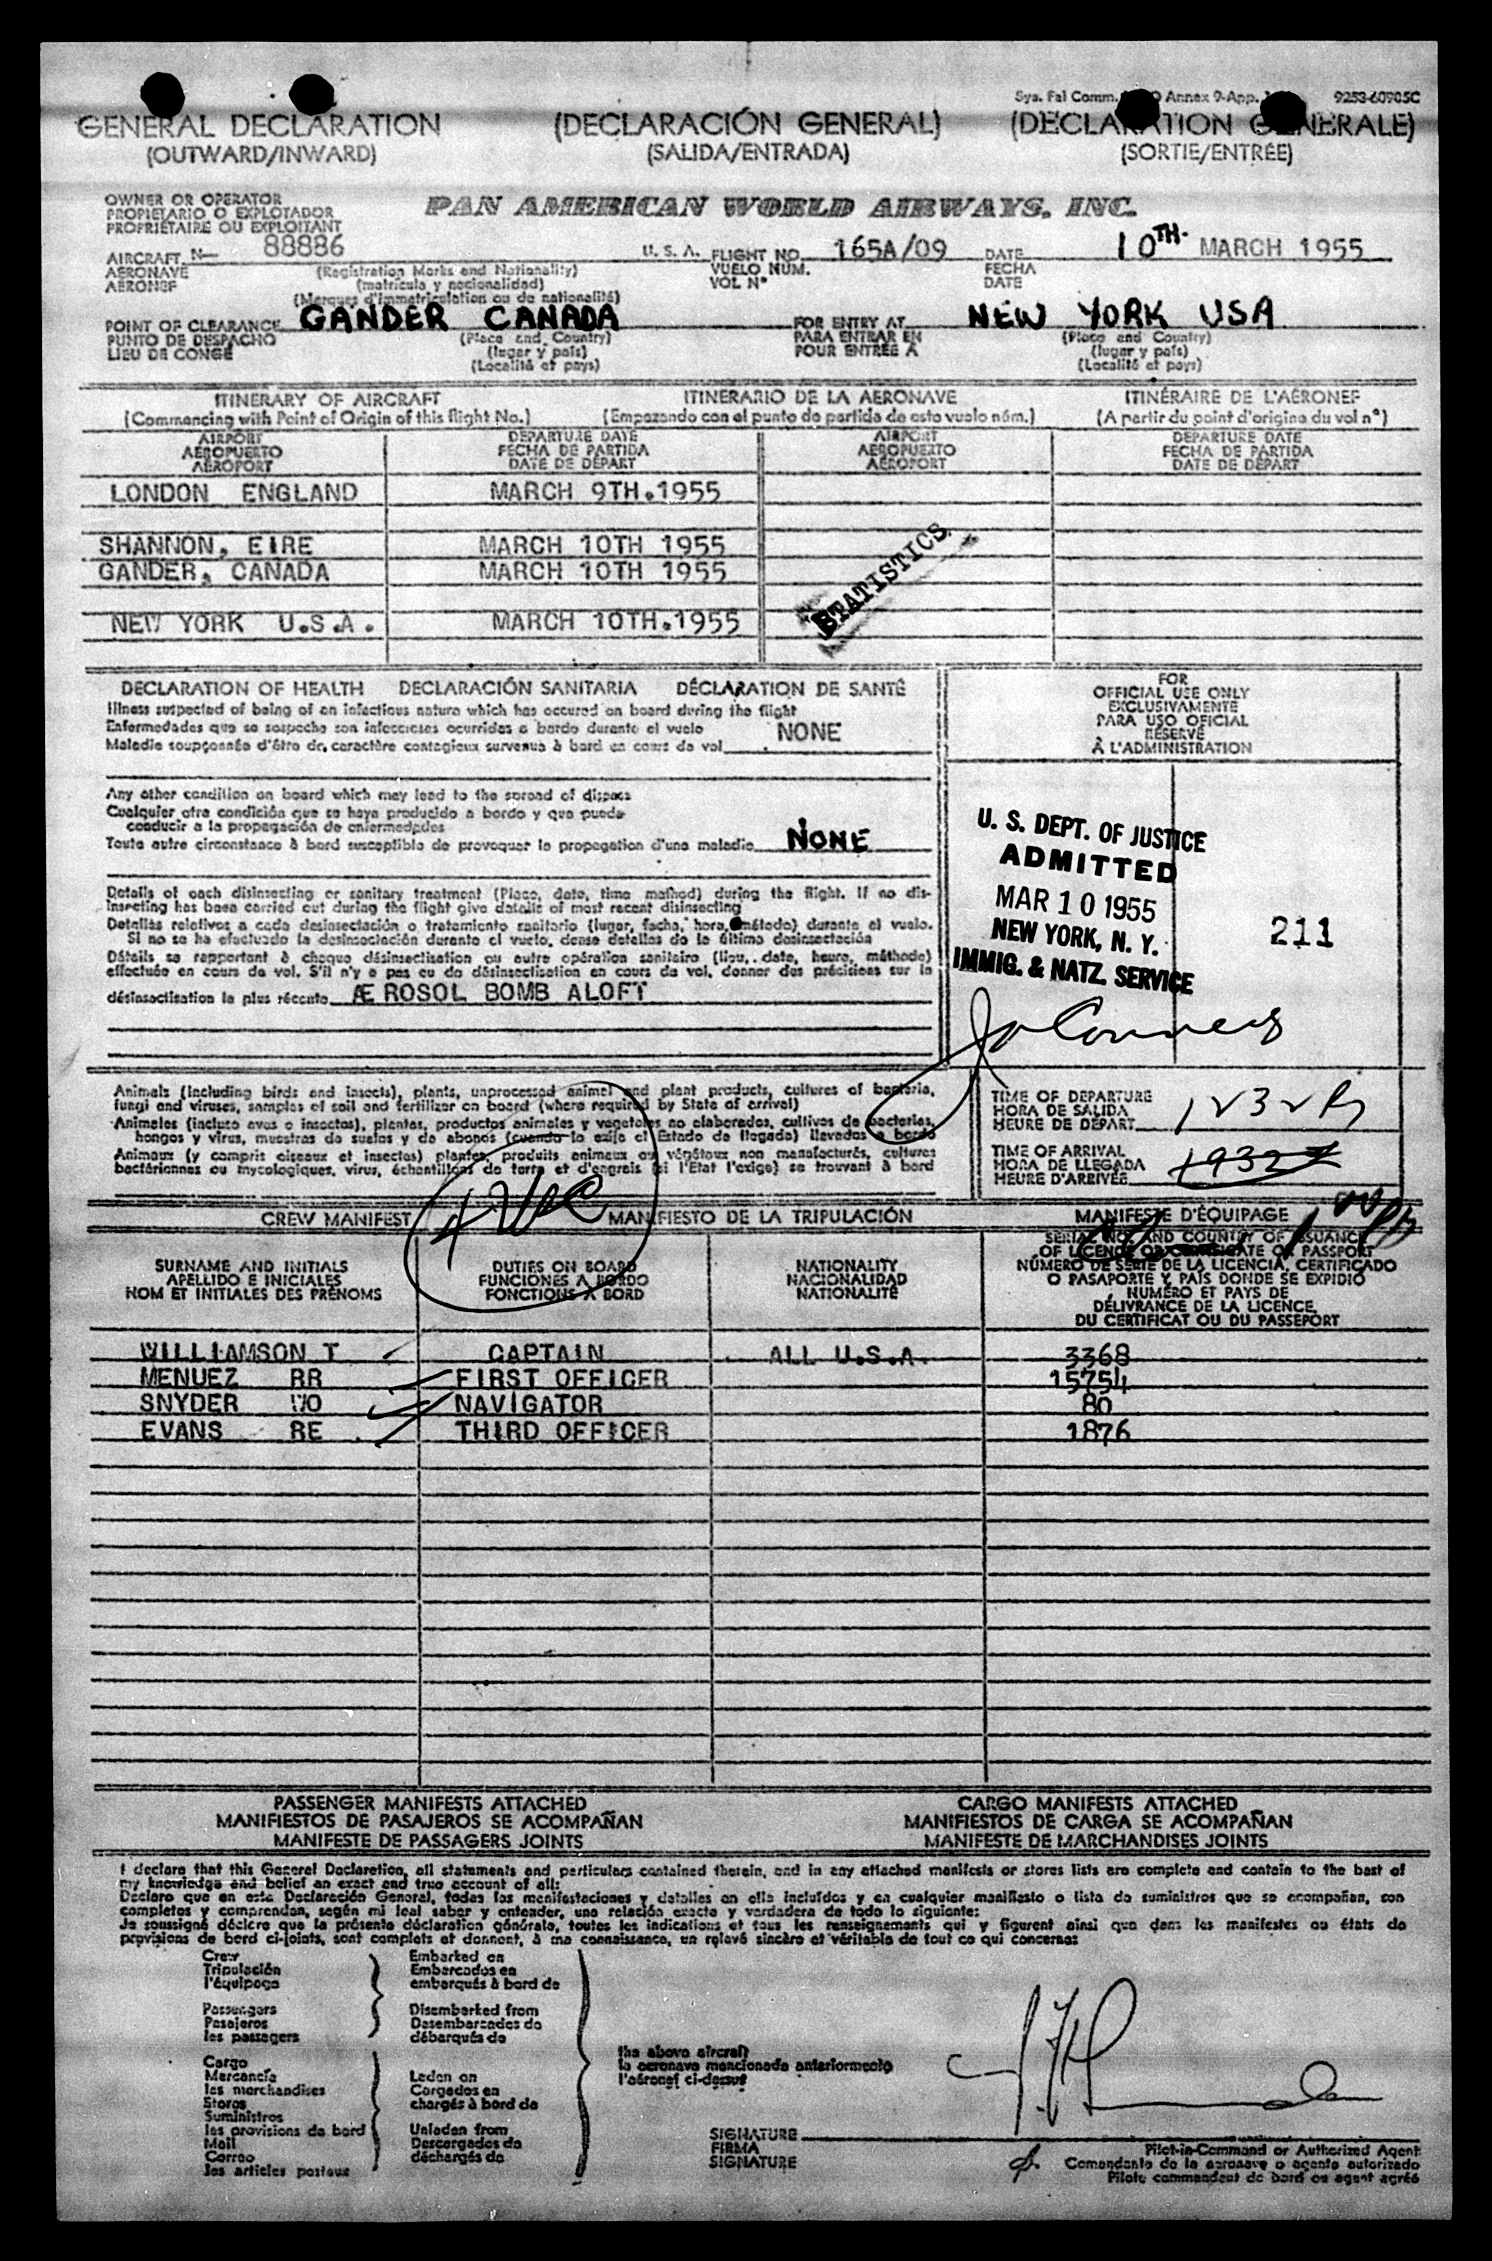 Sys. Fal Comm. Annex 9-App. 9253-60905C
GENERAL DECLARATION (DECLARACIÓN GENERAL) (DECLARATION GENERALE)
(OUTWARD/INWARD) (SALIDA/ENTRADA) (SORTIE/ENTRÉE)
OWNER OR OPERATOR
PROPIETARIO O EXPLOTADOR
PROPRIÉTAIRE OU EXPLOITANT
PAN AMERICAN WORLD AIRWAYS, INC.
AIRCRAFT N— 88886 U. S. A. FLIGHT NO. 165A/09 DATE 10TH. MARCH 1955
AERONAVE (Registration Marks and Nationality) VUELO NUM. FECHA
AÉRONEF (matrícula y nacionalidad) VOL N° DATE
(Marques d'immatriculation ou de nationalité)
POINT OF CLEARANCE GANDER CANADA FOR ENTRY AT NEW YORK USA
PUNTO DE DESPACHO (Place and Country) PARA ENTRAR EN (Place and Country)
LIEU DE CONGÉ (lugar y país) POUR ENTRÉE A (lugar y país)
(Localité et pays) (Localité et pays)
ITINERARY OF AIRCRAFT ITINERARIO DE LA AERONAVE ITINÉRAIRE DE L'AÉRONEF
(Commencing with Point of Origin of this flight No.) (Empezando con el punto de partida de este vuelo núm.) (A partir du point d'origine du vol n°)
AIRPORT DEPARTURE DATE AIRPORT DEPARTURE DATE
AEROPUERTO FECHA DE PARTIDA AEROPUERTO FECHA DE PARTIDA
AÉROPORT DATE DE DÉPART AÉROPORT DATE DE DÉPART
LONDON ENGLAND MARCH 9TH.1955
SHANNON, EIRE MARCH 10TH 1955
GANDER, CANADA MARCH 10TH 1955
NEW YORK U.S.A. MARCH 10TH.1955
STATISTICS
DECLARATION OF HEALTH DECLARACIÓN SANITARIA DÉCLARATION DE SANTÉ
Illness suspected of being of an infectious nature which has occured on board during the flight
Enfermedades que se sospecha son infecciosas ocurridas a bordo durante el vuelo NONE
Maladie soupçonnée d'être de caractère contagieux survenue à bord en cours de vol
FOR
OFFICIAL USE ONLY
EXCLUSIVAMENTE
PARA USO OFICIAL
RÉSERVÉ
À L'ADMINISTRATION
Any other condition on board which may lead to the spread of disease
Cualquier otra condición que se haya producido a bordo y que pueda
conducir a la propagación de enfermedades
Toute autre circonstance à bord susceptible de provoquer la propagation d'une maladie NONE
U. S. DEPT. OF JUSTICE
ADMITTED
MAR 10 1955
NEW YORK, N. Y.
IMMIG. & NATZ. SERVICE
211
Details of each disinsecting or sanitary treatment (Place, date, time method) during the flight. If no dis-
insecting has been carried out during the flight give details of most recent disinsecting
Detalles relativos a cada desinsectación o tratamiento sanitario (lugar, fecha, hora, método) durante el vuelo.
Si no se ha efectuado la desinsectación durante el vuelo, dense detalles de la última desinsectación
Détails se rapportant à chaque désinsectisation ou autre opération sanitaire (lieu, date, heure, méthode)
effectuée en cours de vol. S'il n'y a pas eu de désinsectisation en cours de vol, donner des précisions sur la
désinsectisation la plus récente ÆROSOL BOMB ALOFT
Animals (including birds and insects), plants, unprocessed animal and plant products, cultures of bacteria,
fungi and viruses, samples of soil and fertilizer on board (where required by State of arrival)
Animales (incluso aves o insectos), plantas, productos animales y vegetales no elaborados, cultivos de bacterias,
hongos y virus, muestras de suelos y de abonos (cuando lo exija el Estado de llegada) llevados a bordo
Animaux (y compris oiseaux et insectes) plantes, produits animaux ou végétaux non manufacturés, cultures
bactériennes ou mycologiques, virus, échantillons de terre et d'engrais (si l'Etat l'exige) se trouvant à bord
TIME OF DEPARTURE
HORA DE SALIDA
HEURE DE DÉPART 1232
TIME OF ARRIVAL
HORA DE LLEGADA
HEURE D'ARRIVÉE 1932Z
CREW MANIFEST MANIFIESTO DE LA TRIPULACIÓN MANIFESTE D'ÉQUIPAGE
SURNAME AND INITIALS
APELLIDO E INICIALES
NOM ET INITIALES DES PRÉNOMS
DUTIES ON BOARD
FUNCIONES A BORDO
FONCTIONS A BORD
NATIONALITY
NACIONALIDAD
NATIONALITÉ
SERIAL NO. AND COUNTRY OF ISSUANCE
OF LICENCE OR CERTIFICATE OR PASSPORT
NÚMERO DE SERIE DE LA LICENCIA, CERTIFICADO
O PASAPORTE Y PAÍS DONDE SE EXPIDIÓ
NUMÉRO ET PAYS DE
DÉLIVRANCE DE LA LICENCE,
DU CERTIFICAT OU DU PASSEPORT
WILLIAMSON T CAPTAIN ALL U.S.A. 3368
MENUEZ RR FIRST OFFICER 15754
SNYDER WO NAVIGATOR 80
EVANS RE THIRD OFFICER 1876
PASSENGER MANIFESTS ATTACHED CARGO MANIFESTS ATTACHED
MANIFIESTOS DE PASAJEROS SE ACOMPAÑAN MANIFIESTOS DE CARGA SE ACOMPAÑAN
MANIFESTE DE PASSAGERS JOINTS MANIFESTE DE MARCHANDISES JOINTS
I declare that this General Declaration, all statements and particulars contained therein, and in any attached manifests or stores lists are complete and contain to the best of
my knowledge and belief an exact and true account of all:
Declaro que en esta Declaración General, todas las manifestaciones y detalles en ella incluídos y en cualquier manifiesto o lista de suministros que se acompañan, son
completos y comprendan, según mi leal saber y entender, una relación exacta y verdadera de todo lo siguiente:
Je soussigné déclare que la présente déclaration générale, toutes les indications et tous les renseignements qui y figurent ainsi que dans les manifestes ou états de
provisions de bord ci-joints, sont complets et donnent, à ma connaissance, un relevé sincère et véritable de tout ce qui concerne:
Crew Embarked on
Tripulación Embarcados en
l'équipage embarqués à bord de
Passengers Disembarked from
Pasajeros Desembarcados de
les passagers débarqués de
the above aircraft
la aeronave mencionada anteriormente
l'aéronef ci-dessus
Cargo
Mercancía Laden on
les marchandises Cargados en
Stores chargés à bord de
Suministros
les provisions de bord Unladen from
Mail Descargados de
Correo déchargés de
les articles postaux
SIGNATURE
FIRMA
SIGNATURE
Pilot-in-Command or Authorized Agent
Comandante de la aeronave o agente autorizado
Pilote commandant de bord ou agent agréé